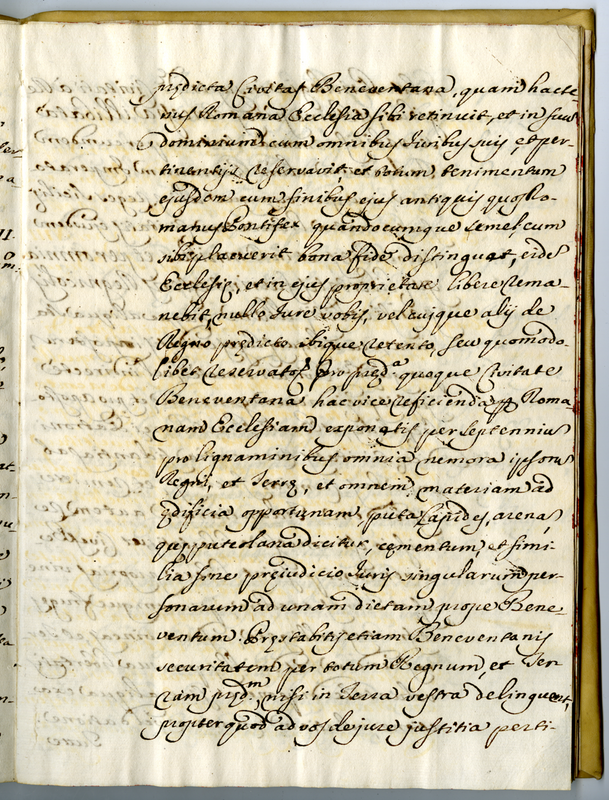 prędicta Civitas Beneventana, quam hacte-
nus Romana Ecclesia sibi retinuit, et in suu
dominium cum omnibus Iuribus suis, et per-
tinentijs reservavit, et totum tenimentum
ejusdem cum finibus ejus antiquis quos Ro-
manus Pontifex quandocumque semel cum
sibi placuerit bona fide distinguet, eidē
Ecclesię, et in ejus proprietate libere rema-
nebit, nullo Iure vobis, vel cuique alij de
Regno prędicto ibique retento, seu quomodo-
libet reservato. Pro pred.ª quoque Civitate
Beneventana hac vice reficienda per Roma-
nam Ecclesiam exponetis per septennium
pro lignaminibus omnia nemora ipsorū
Regni, et Terrę, et omnem materiam ad
ędificia opportunam, puta lapides, arenā,
quę puteolana dicitur, cęmentum, et simi-
lia sine pręiudicio Iuris singularum per-
sonarum ad unam dietam prope Bene-
ventum. Pręstabitis etiam Beneventanis
securitatem per totum Regnum, et Ter-
ram pręd.m, nisi in Terra vestra delinquent,
propter quod ad vos de jure justitia perti-